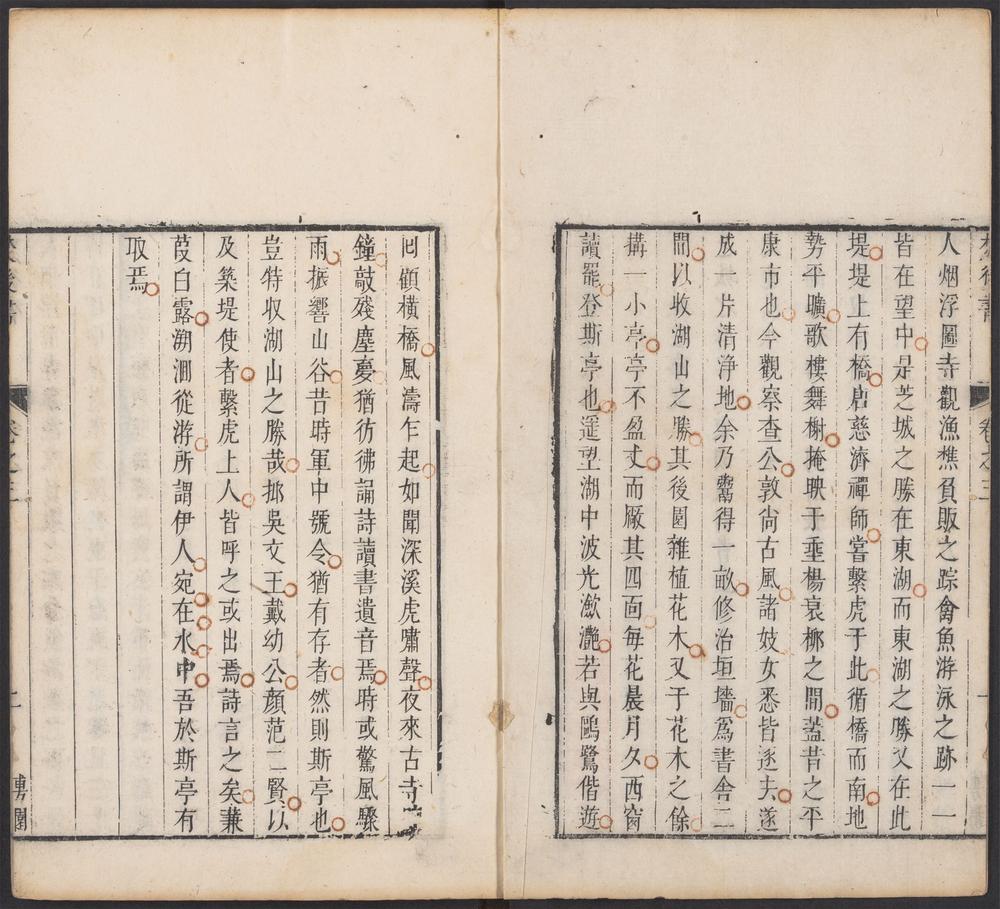 人烟浮圖寺觀漁樵負販之踪禽魚游泳之跡一一
皆在望中是芝城之勝在東湖而東湖之勝又在此
堤堤上有橋唐慈濟禪師嘗繫虎于此循橋而南地
勢平曠歌樓舞榭掩映于垂楊衰栁之間蓋昔之平
康市也今觀察查公敦尚古風諸妓女悉皆逐去遂
成一片清淨地余乃鬻得一畝修治垣墻爲書舍二
間以收湖山之勝其後園雜植花木又于花木之餘
搆一小亭亭不盈丈而厰其四面每花晨月夕西窗
讀罷登斯亭也遥望湖中波光瀲灔若與鷗鷺偕遊
回顧橫橋風濤乍起如聞深溪虎嘯聲夜來古寺
鐘敲殘塵慶猶彷彿誦詩讀書遺音焉時或驚風驟
雨振響山谷昔時軍中號令猶有存者然則斯亭也
豈特収湖山之勝哉抑吳文王戴幼公顔范二賢以
及築堤使者繫虎上人皆呼之或出焉詩言之矣蒹
葭白露溯洄從游所謂伊人宛在水中吾於斯亭有
取焉
卷之三